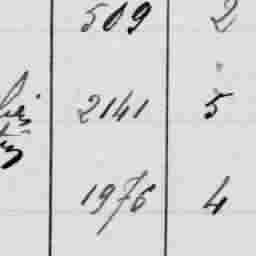 509 2
2141 5
1976 4